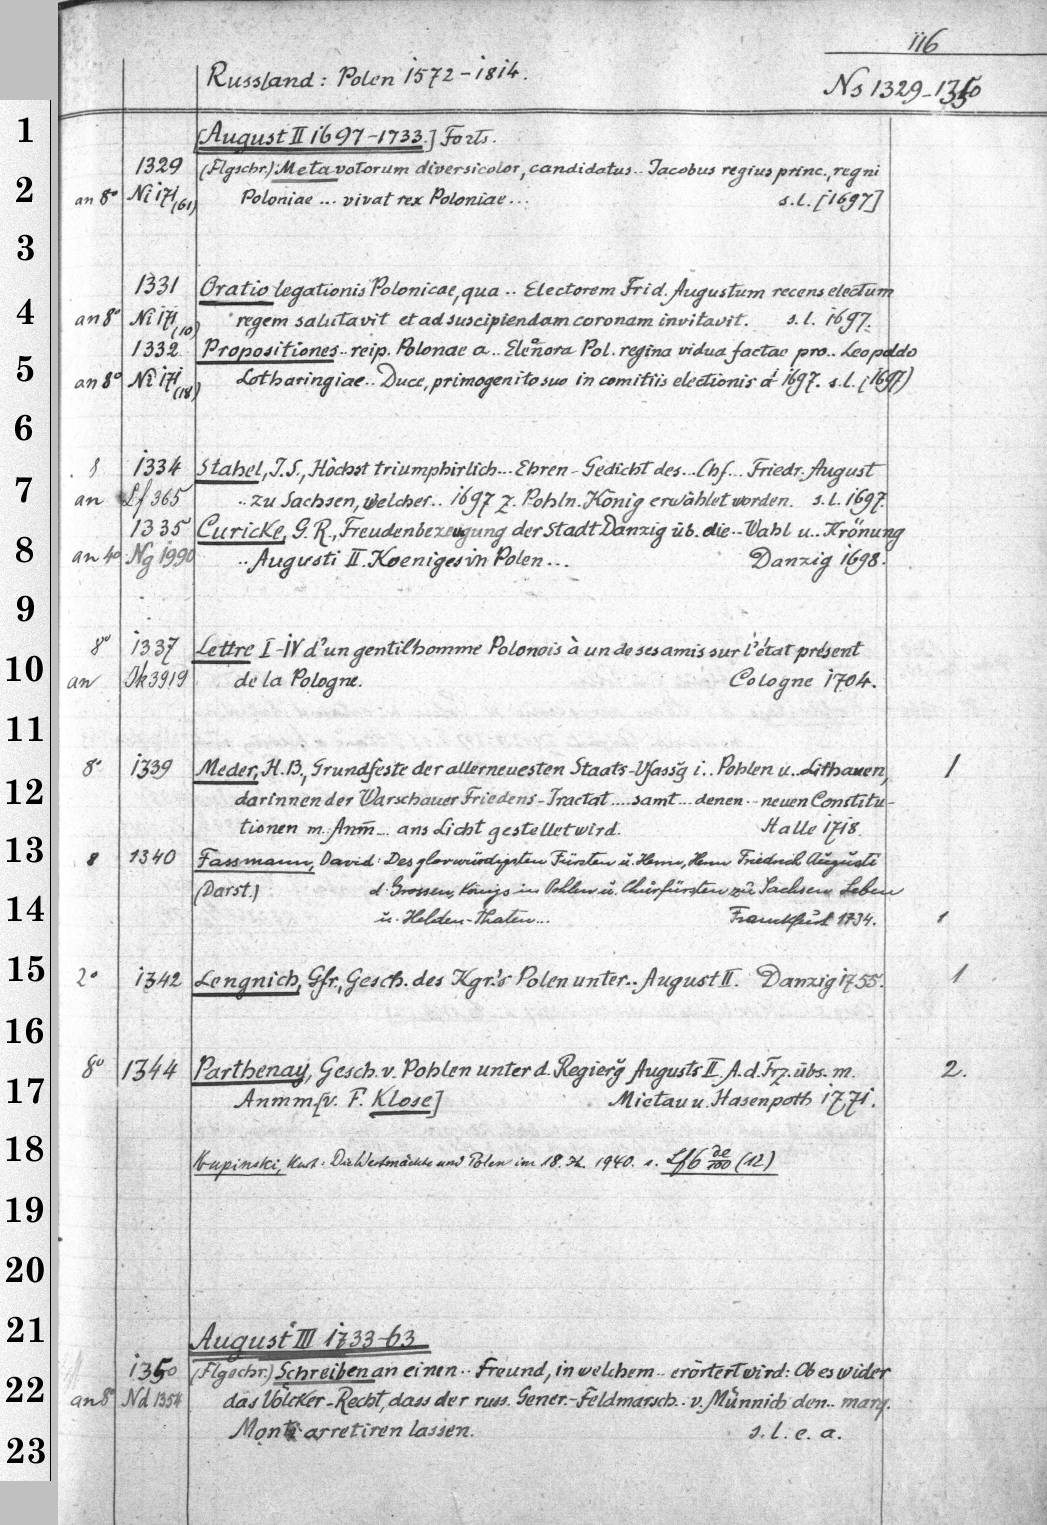 116
Russland: Polen 1572-1814.
Ns 1329-1350
[August II 1697-1733.] Forts.
1329 (Flgschr.) Meta votorum diversicolor, candidatus.. Jacobus regius princ., regni
an 8° Ni 171 (61) Poloniae ... vivat rex Poloniae ... s.l. [1697]
1331 Oratio legationis Polonicae, qua .. Electorem Frid. Augustum recens electum
an 8° Ni 171 (10) regem salutavit et ad suscipiendam coronam invitavit. s.l. 1697.
1332 Propositiones.. reip. Polonae a.. Elenora Pol. regina vidua factae pro.. Leopoldo
an 8° Ni 171 (18) Lotharingiae.. Duce, primogenito suo in comitiis electionis a' 1697. s.l. (1697)
8 1334 Stahel, J.S., Höchst triumphirlich... Ehren-Gedicht des... Chf... Friedr. August
an Lf 365 .. zu Sachsen, welcher.. 1697 z. Pohln. König erwählet worden. s.l. 1697.
1335 Curicke, G.R., Freudenbezeugung der Stadt Danzig üb. die.. Wahl u.. Krönung
an 4° Ng 1990 .. Augusti II. Koeniges in Polen ... Danzig 1698.
8° 1337 Lettre I-IV d'un gentilhomme Polonois à un de ses amis sur l'état présent
an 3919 de la Pologne. Cologne 1704.
8° 1339 Meder, H.B., Grundfeste der allerneuesten Staats-Vfassg i.. Pohlen u.. Lithauen, 1
darinnen der Warschauer Friedens-Tractat .... samt... denen.. neuen Constitu-
tionen m. Anm... ans Licht gestellet wird. Halle 1718.
8 1340 Fassmann, David: Des glorwürdigsten Fürsten u. Herrn, Herrn Friedrich Augusti
(Darst.) d. Grossen, Königs in Pohlen u. Churfürsten zu Sachsen Leben
u. Helden-Thaten... Franckfurt 1734. 1
2° 1342 Lengnich, Gfr., Gesch. des Kgr.'s Polen unter.. August II. Danzig 1755. 1
8° 1344 Parthenay, Gesch. v. Pohlen unter d. Regierg Augusts II. A. d. Frz. übs. m. 2.
Anmm. [v. F. Klose] Mietau u. Hasenpoth 1771.
Kupinski, Kurt: Die Westmächte und Polen im 18. Jh. 1940. s. Lf 6 de/700 (12)
August III 1733-63
1350 (Flgschr.) Schreiben an einen.. Freund, in welchem.. erörtert wird: Ob es wider
an 8° Nd 1354 das Völcker-Recht, dass der russ. Gener.-Feldmarsch.. v. Münnich den.. marq.
Monti arretiren lassen. s.l.e.a.
1
2
3
4
5
6
7
8
9
10
11
12
13
14
15
16
17
18
19
20
21
22
23